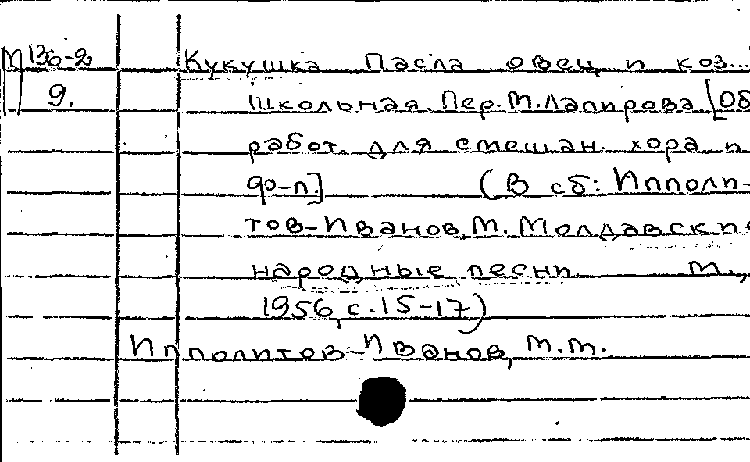 М 136-2
9.
Кукушка пасла овец и коз...
Школьная. Пер. М. Лапирова [Об
работ. для смешан. хора и
ф-п.] (В сб: Ипполи-
тов-Иванов, М. Молдавские
народные песни. М.,
1956, с. 15-17)
Ипполитов-Иванов, М.М.